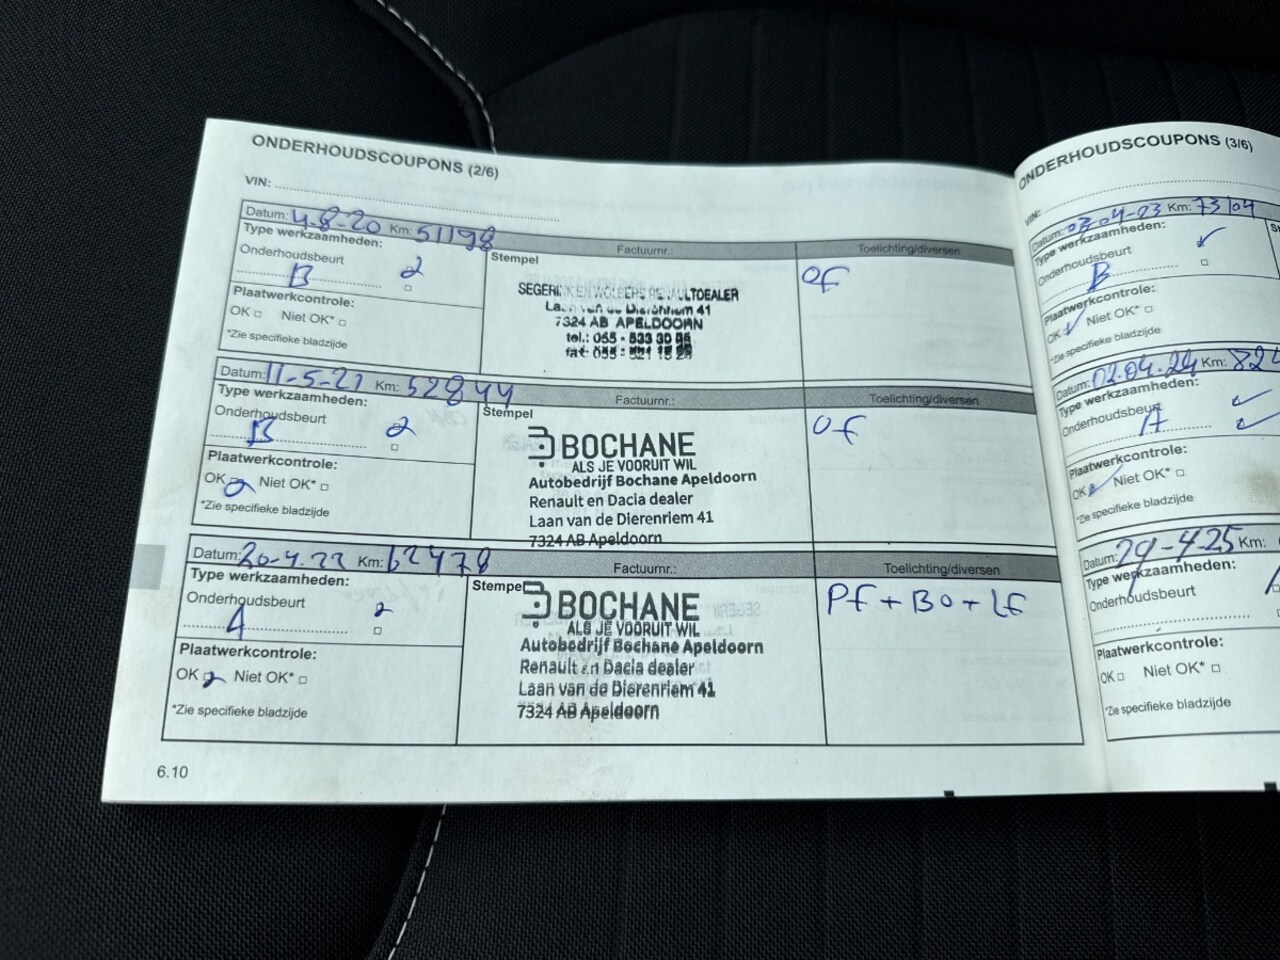 ONDERHOUDSCOUPONS (2/6)
VIN:
Datum: 4-8-20 Km: 51198
Type werkzaamheden:
Factuurnr.:
Toelichting/diversen
Onderhoudsbeurt
B
Stempel
OF
SEGERINK EN WOLBERS RENAULTDEALER
Laan van de Dierenriem 41
7324 AB APELDOORN
Plaatwerkcontrole:
OK Niet OK*
*Zie specifieke bladzijde
Datum: 11-5-21 Km: 52844
Type werkzaamheden:
Factuurnr.:
Toelichting/diversen
Onderhoudsbeurt
B
Stempel
OF
BOCHANE
ALS JE VOORUIT WIL
Autobedrijf Bochane Apeldoorn
Renault en Dacia dealer
Laan van de Dierenriem 41
7324 AB Apeldoorn
Plaatwerkcontrole:
OK Niet OK*
*Zie specifieke bladzijde
Datum: 20-4-22 Km: 62478
Type werkzaamheden:
Factuurnr.:
Toelichting/diversen
Onderhoudsbeurt
A
Stempel
PF + BO + LF
BOCHANE
ALS JE VOORUIT WIL
Autobedrijf Bochane Apeldoorn
Renault en Dacia dealer
Laan van de Dierenriem 41
7324 AB Apeldoorn
Plaatwerkcontrole:
OK Niet OK*
*Zie specifieke bladzijde
6.10
ONDERHOUDSCOUPONS (3/6)
VIN:
Datum: 03-04-23 Km: 73104
Type werkzaamheden:
Onderhoudsbeurt
B
Plaatwerkcontrole:
OK Niet OK*
*Zie specifieke bladzijde
Datum: 02-04-24 Km: 824
Type werkzaamheden:
Onderhoudsbeurt
A
Plaatwerkcontrole:
OK Niet OK*
*Zie specifieke bladzijde
Datum: 29-4-25 Km:
Type werkzaamheden:
Onderhoudsbeurt
Plaatwerkcontrole:
OK Niet OK*
*Zie specifieke bladzijde